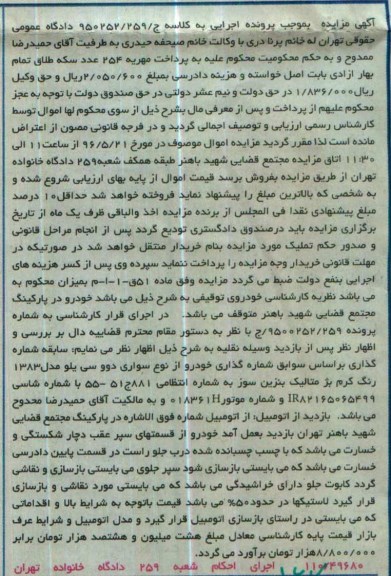 آگهی مزایده بموجب پرونده اجرایی به کلاسه ج/۹۵۰۲۵۲/۲۵۹ دادگاه عمومی
حقوقی تهران له خانم پرنا دری با وکالت خانم صیحفه حیدری به طرفیت آقای حمیدرضا
ممدوح و به حکم محکومیت محکوم علیه به پرداخت مهریه ۲۵۴ عدد سکه طلای تمام
بهار آزادی بابت اصل خواسته و هزینه دادرسی بمبلغ ۲/۰۵۰/۶۰۰ریال و حق وکیل
۱/۸۳۶/۰۰۰ریال در حق دولت و نیم عشر دولتی در حق صندوق دولت با توجه به عجز
محکوم علیهم از پرداخت و پس از معرفی مال بشرح ذیل از سوی محکوم لها اموال توسط
کارشناس رسمی ارزیابی و توصیف اجمالی گردید و در فرجه قانونی مصون از اعتراض
مانده است لذا مقرر گردید مزایده اموال موصوف در مورخ ۹۶/۵/۲۱ از ساعت۱۱ الی
۱۱:۳۰ اتاق مزایده مجتمع قضایی شهید باهنر طبقه همکف شعبه۲۵۹ دادگاه خانواده
تهران از طریق مزایده بفروش برسد قیمت اموال از پایه بهای ارزیابی شروع شده و
به شخصی که بالاترین مبلغ را پیشنهاد نماید فروخته خواهد شد حداقل۱۰ درصد
مبلغ پیشنهادی نقدا فی المجلس از برنده مزایده اخذ والباقی ظرف یک ماه از تاریخ
برگزاری مزایده باید درصندوق دادگستری تودیع گردد پس از انجام مراحل قانونی
و صدور حکم تملیک مورد مزایده بنام خریدار منتقل خواهد شد در صورتیکه در
مهلت قانونی خریدار وجه مزایده را پرداخت ننماید سپرده وی پس از کسر هزینه های
اجرایی بنفع دولت ضبط می گردد مزایده وفق ماده ۵۱ق-۱-ا-م بمیزان محکوم به
می باشد نظریه کارشناسی خودروی توقیفی به شرح ذیل می باشد خودرو در پارکینگ
مجتمع قضایی شهید باهنر متوقف می باشد. در اجرای قرار کارشناسی به شماره
پرونده ۹۵۰۰۲۵۲/۲۵۹/ج با نظر به دستور مقام محترم قضاییه دال بر بررسی و
اظهار نظر پس از بازدید وسیله نقلیه به شرح ذیل اظهار نظر می نمایم: سابقه شماره
گذاری براساس سوابق شماره گذاری خودرو از نوع سواری دوو سی یلو مدل۱۳۸۳
رنگ کرم بژ متالیک بنزین سوز به شماره انتظامی ۸۸۱ج۵۱ -۵۵ با شماره شاسی
IR۸۲۱۶۵۰۶۵۴۹۹ و شماره موتور۰۱۸۳۶۱H و به مالکیت آقای حمیدرضا محدوح
می باشد. بازدید از اتومبیل: از اتومبیل شماره فوق الاشاره در پارکینگ مجتمع قضایی
شهید باهنر تهران بازدید بعمل آمد خودرو از قسمتهای سپر عقب دچار شکستگی و
خسارت می باشد که با چسب چسبانده شده درب جلو راست در قسمت پایین دادرسی
خسارت می باشد که می بایستی بازسازی شود سپر جلوی می بایستی بازسازی و نقاشی
گردد کاپوت جلو دارای خراشیدگی می باشد که می بایستی مورد نقاشی و بازسازی
قرار گیرد لاستیکها در حدود۵۰% می باشد قیمت باتوجه به شرایط بالا و اقداماتی
که می بایستی در راستای بازسازی اتومبیل قرار گیرد و مدل اتومبیل و شرایط عرف
بازار قیمت پایه کارشناسی معادل مبلغ هشت میلیون و هشتصد هزار تومان برابر
۸/۸۰۰/۰۰۰هزار تومان برآورد می گردد.
۱۱۰/۴۹۶۸۰ اجرای احکام شعبه ۲۵۹ دادگاه خانواده تهران